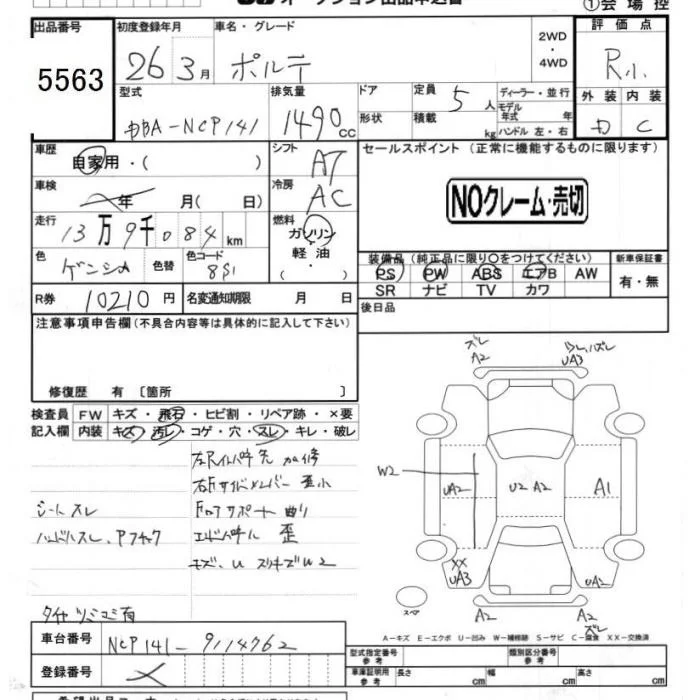 ①会場控
出品番号 初度登録年月 車名・グレード 2WD ・ 4WD 評価点
5563 26年3月 ポルテ R小
型式 排気量 ドア 定員 ディーラー・並行 外装 内装
DBA-NCP141 1490cc 5人 モデル年式 年
形状 積載 kg ハンドル 左・右 C
車歴 シフト セールスポイント (正常に機能するものに限ります)
自家用・( ) AT
車検 年 月( 日) 冷房 AC NOクレーム・売切
走行 13万9千084km 燃料 ガソリン
軽油
( ・ )
色 色替 色コード 8S1 装備品(純正品に限り○をつけてください) 新車保証書
PS PW ABS エアB AW 有・無
SR ナビ TV カワ
R券 10210円 名変通知期限 月 日 後日品
注意事項申告欄(不具合内容等は具体的に記入して下さい)
修復歴 有 〔箇所 〕
検査員 FW キズ・飛石・ヒビ割・リペア跡・×要
記入欄 内装 キズ・汚レ・コゲ・穴・スレ・キレ・破レ
左Rインパネ先 加修
右Fサイドメンバー 歪小
シートスレ FロアサポートR曲り
ハンドルスレ、Pフチャック エンドパネル 歪
キズ、U スリキズ W2
タイヤツミコミ有
ズレ
A2
UA3
W2
UA2
U2 A2
A1
XX
UA3
UA2
スペア
A2
A2
ズレ
A-キズ E-エクボ U-凹み W-補修跡 S-サビ C-腐食 XX-交換済
車台番号 NCP141-9114762
登録番号
型式指定番号 参考 類別区分番号 参考
車庫証明用 参考 長さ cm 幅 cm 高さ cm